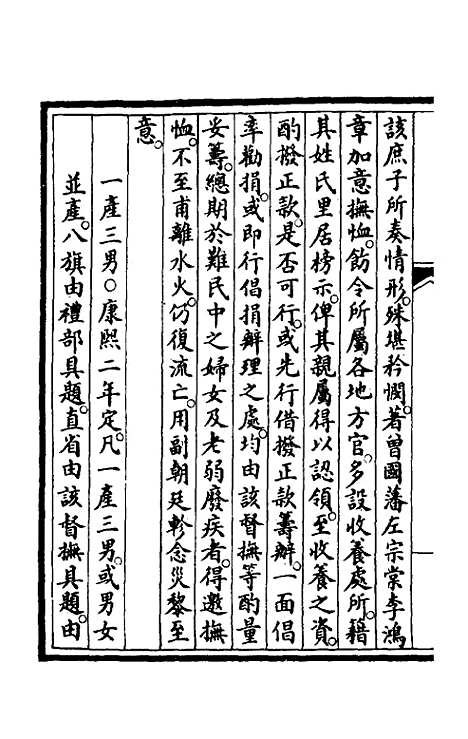 該庶子所奏情形。殊堪矜憫。著曾國藩左宗棠李鴻
章加意撫恤。飭令所屬各地方官。多設收養處所。籍
其姓氏里居榜示。俾其親屬得以認領。至收養之資。
酌撥正款。是否可行。或先行借撥正款籌辦。一面倡
率勸捐。或即行倡捐辦理之處。均由該督撫等酌量
妥籌。總期於難民中之婦女及老弱廢疾者。得邀撫
恤。不至甫離水火。仍復流亡。用副朝廷軫念災黎至
意。
一產三男○康熙二年定。凡一產三男。或男女
並產。八旗由禮部具題。直省由該督撫具題。由